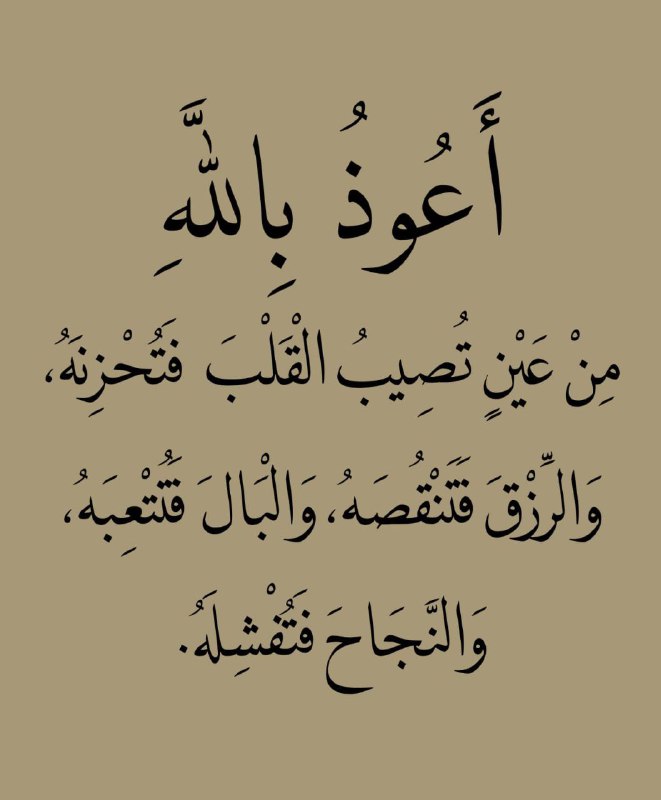 أَعُوذُ بِاللَّهِ
مِنْ عَيْنٍ تُصِيبُ الْقَلْبَ فَتُحْزِنَهُ،
وَالرِّزْقَ فَتَنْقُصَهُ، وَالْبَالَ فَتُتْعِبَهُ،
وَالنَّجَاحَ فَتُفْشِلَهُ.